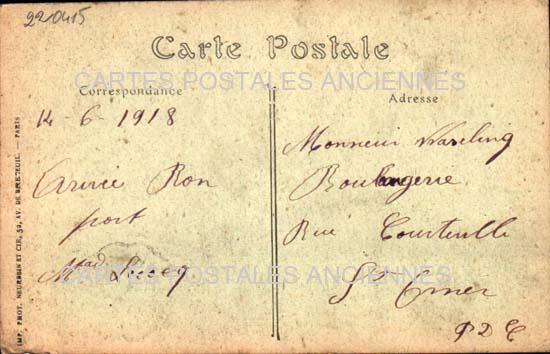 220415
Carte Postale
CARTES POSTALES ANCIENNES
Correspondance
14 6 1918
Arrivé Bon
port
Mad
Adresse
Monsieur
Boulangerie
Rue Courteville
St Omer
P D C
CARTES POSTALES ANCIENNES
IMP. PHOT. NEURDEIN ET CIE, 52, AV. DE BRETEUIL. — PARIS